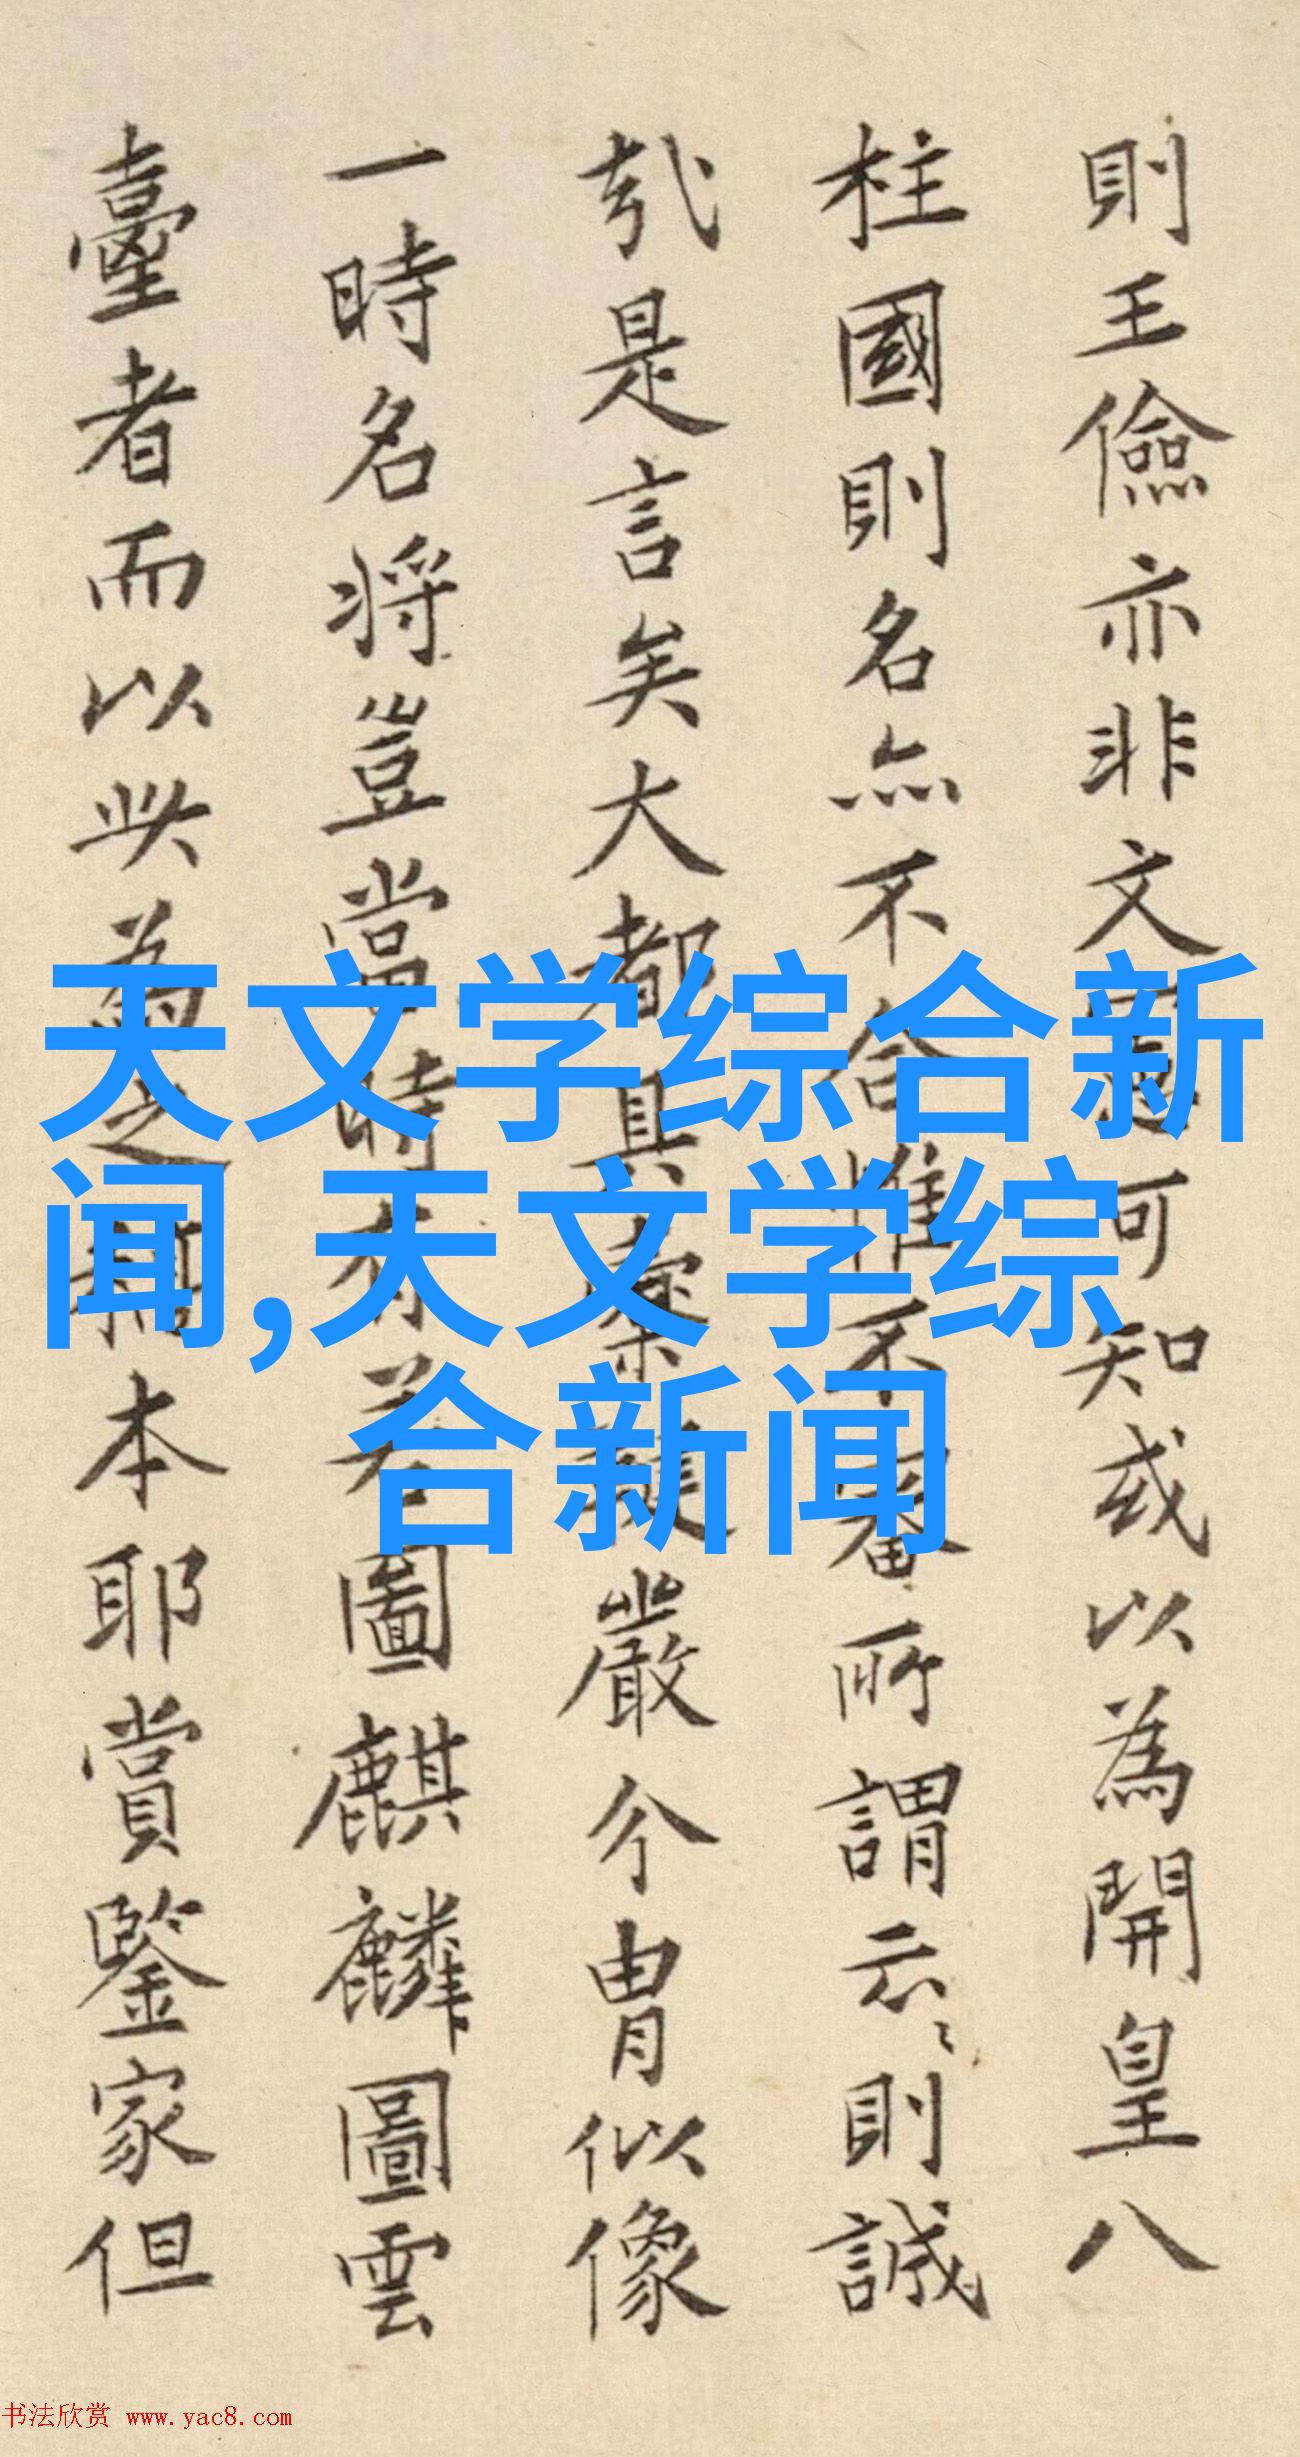 則王儉亦非文可知或以為開皇八
柱國則名亦不合惟不審所謂云〻則誠
哉是言矣大都具嚴今冑似像
一時名將豈當時有若圖麒麟圖雲
臺者而以此為之稿本耶賞鑒家但
天文学综合新
闻,天文学综
合新闻
书法欣赏 www.yac8.com